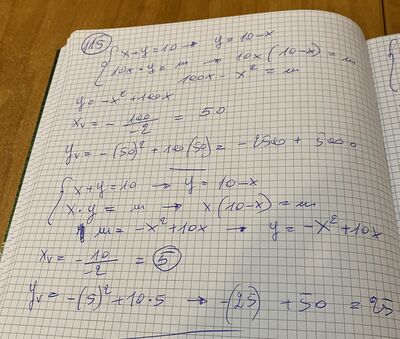 115
{ x+y=10 → y=10-x
10x·y=m → 10x(10-x)=m
100x-x²=m
y=-x²+100x
xv=-100/-2=50
yv=-(50)²+100(50)=-2500+5000
{ x+y=10 → y=10-x
x·y=m → x(10-x)=m
m=-x²+10x → y=-x²+10x
xv=-10/-2=5
yv=-(5)²+10·5 → -(25)+50=25